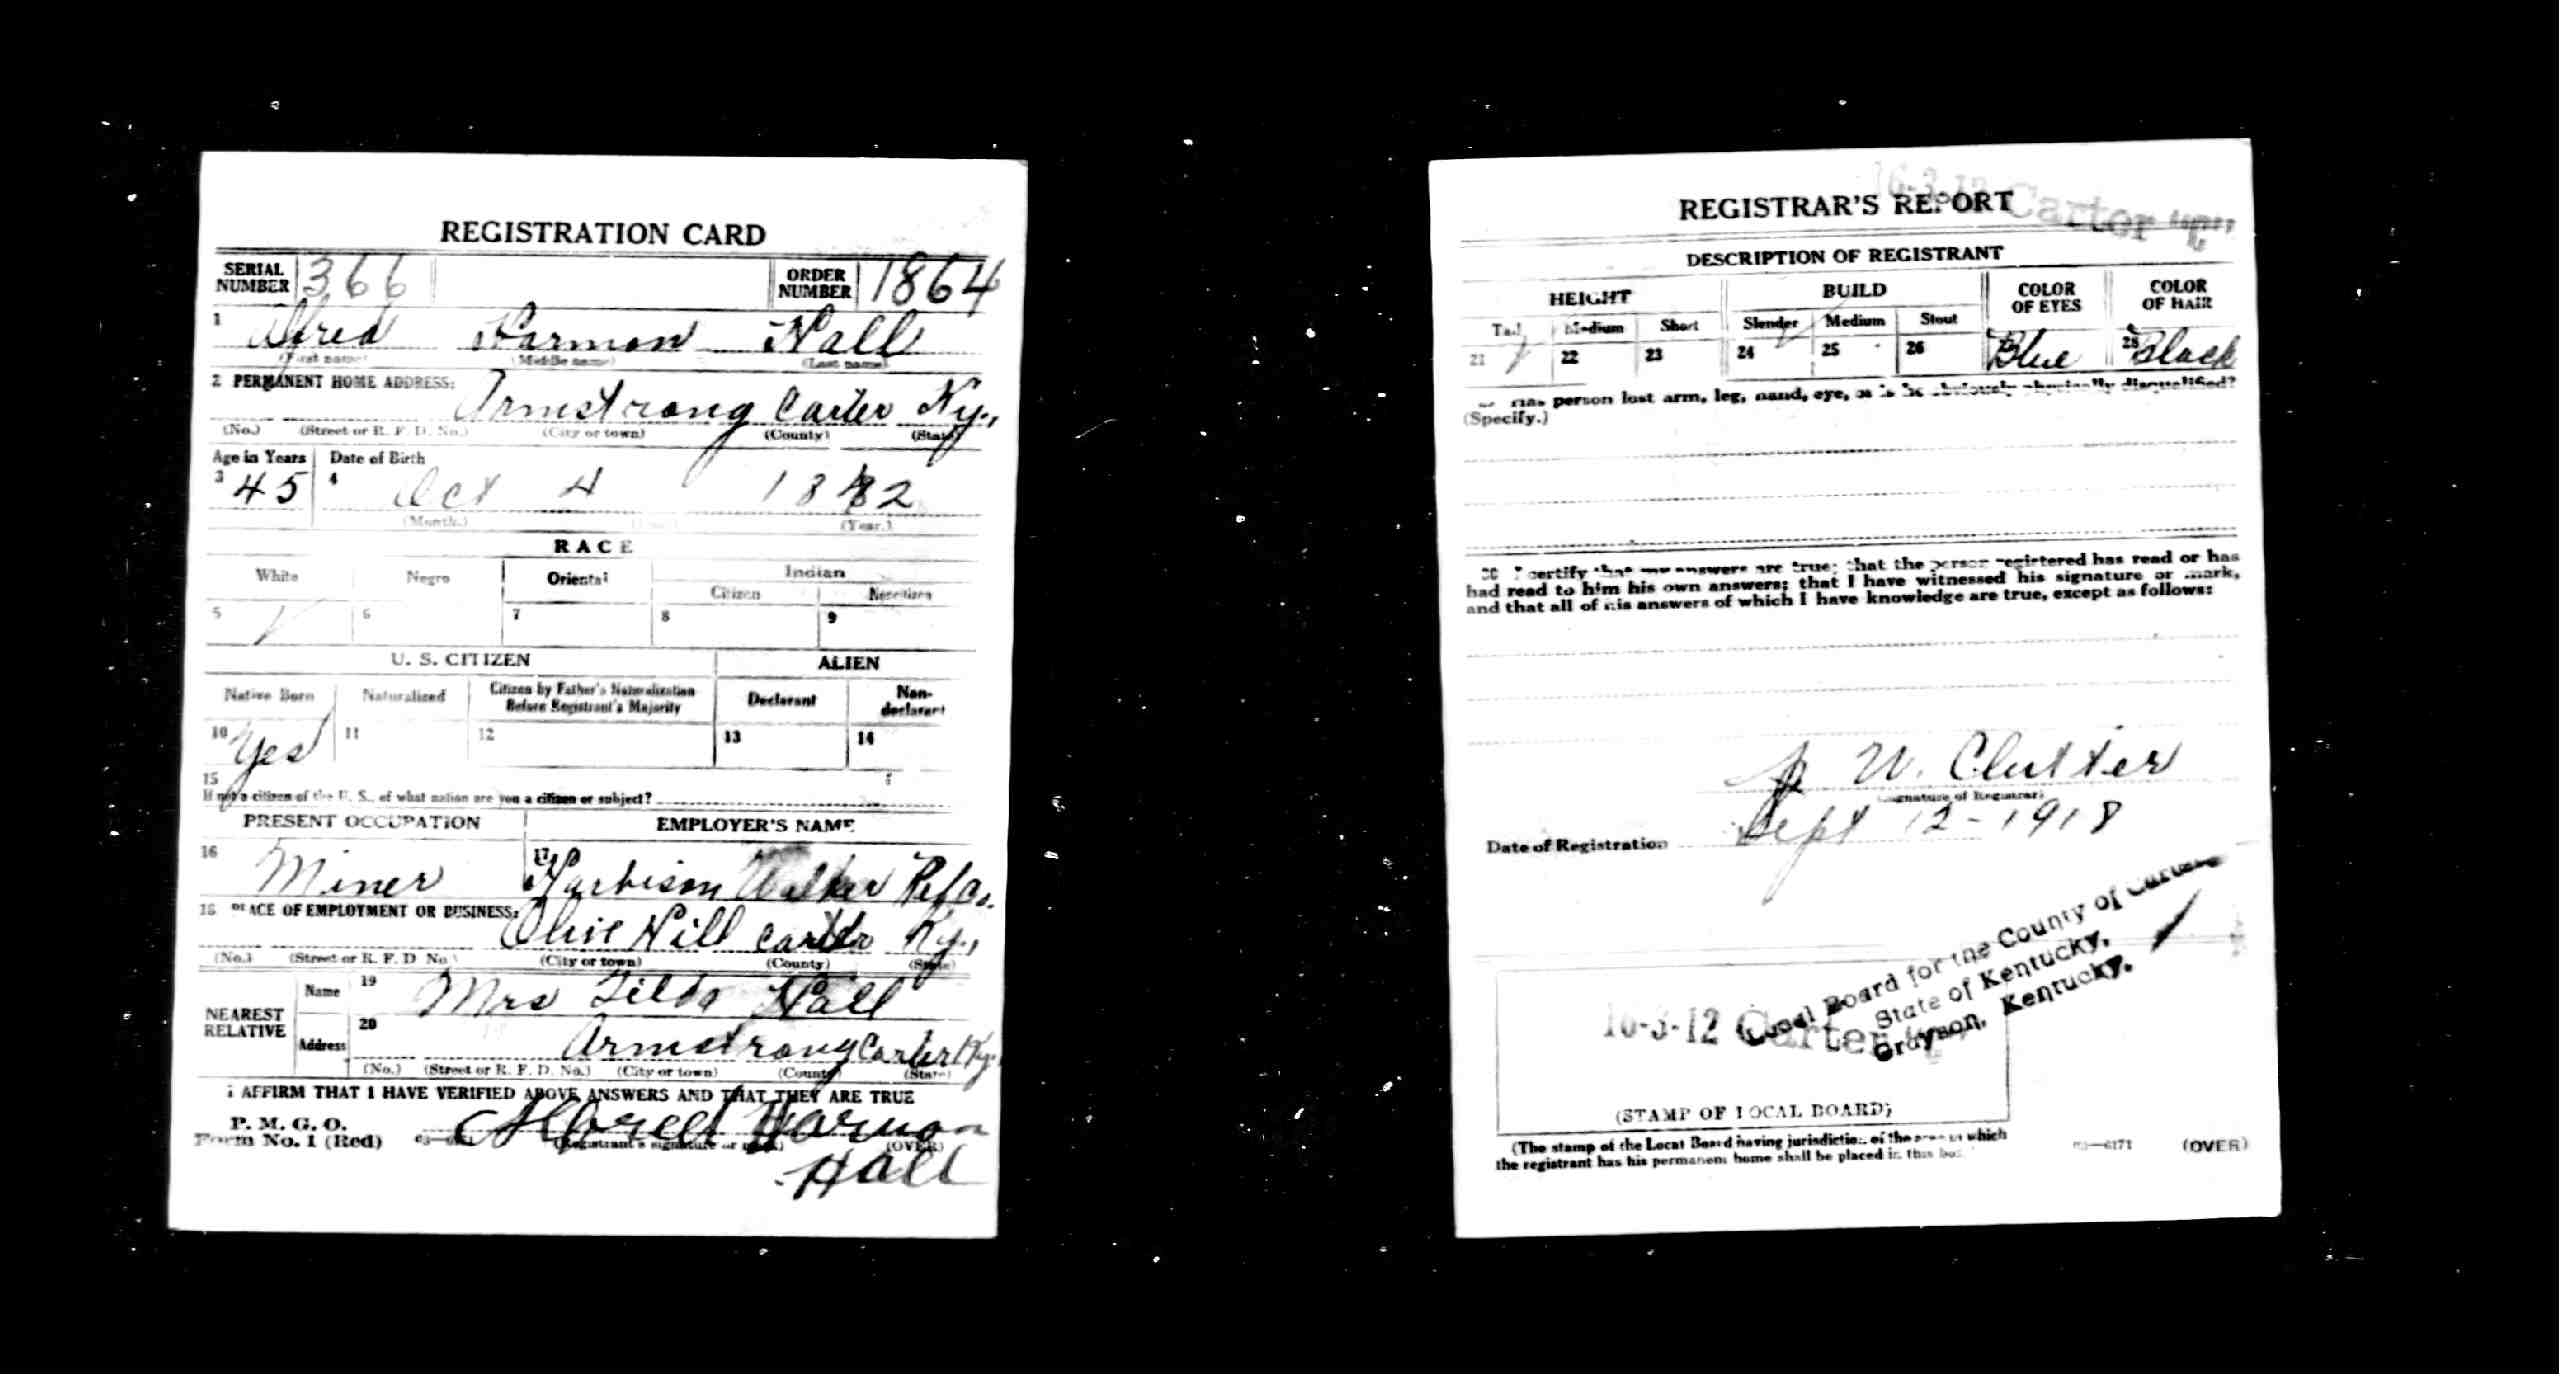 REGISTRATION CARD
SERIAL NUMBER 366 ORDER NUMBER 1864
1 Alfred Harmon Hall
(First name) (Middle name) (Last name)
2 PERMANENT HOME ADDRESS:
Armstrong Carter Ky.,
(No.) (Street or R. F. D. No.) (City or town) (County) (State)
Age in Years Date of Birth
3 45 4 Oct 4
(Month.) (Year.)
RACE
White Negro Oriental Indian
Citizen Noncitizen
5 6 7 8 9
U. S. CITIZEN ALIEN
Native Born Naturalized Citizen by Father's Naturalization Before Registrant's Majority Declarant Non-declarant
10 Yes 11 12 13 14
15
If not a citizen of the U. S., of what nation are you a citizen or subject?
PRESENT OCCUPATION EMPLOYER'S NAME
16 Miner 17 Harbison Walker
18 PLACE OF EMPLOYMENT OR BUSINESS:
Olive Hill Carter Ky.,
(No.) (Street or R. F. D. No.) (City or town) (County) (State)
NEAREST RELATIVE Name 19 Mrs Hall
Address 20 Armstrong Carter Ky.
(No.) (Street or R. F. D. No.) (City or town) (County) (State)
I AFFIRM THAT I HAVE VERIFIED ABOVE ANSWERS AND THAT THEY ARE TRUE
P. M. G. O.
Form No. 1 (Red) Alfred Harmon
(Registrant's signature or mark) (OVER)
Hall
REGISTRAR'S REPORT
16-3-12 Carter
DESCRIPTION OF REGISTRANT
HEIGHT BUILD COLOR OF EYES COLOR OF HAIR
Tall Medium Short Slender Medium Stout
21 22 23 24 25 26 Blue 28 Black
person lost arm, leg, hand, eye, or is he obviously physically disqualified?
(Specify.)
30 I certify that my answers are true; that the person registered has read or has
had read to him his own answers; that I have witnessed his signature or mark,
and that all of his answers of which I have knowledge are true, except as follows:
W. Clutter
(Signature of Registrar)
Date of Registration Sept 12 - 1918
Local Board for the County of Carter
State of Kentucky,
Grayson, Kentucky.
16-3-12 Carter
(STAMP OF LOCAL BOARD)
(The stamp of the Local Board having jurisdiction of the area in which
the registrant has his permanent home shall be placed in this box.)
(OVER)